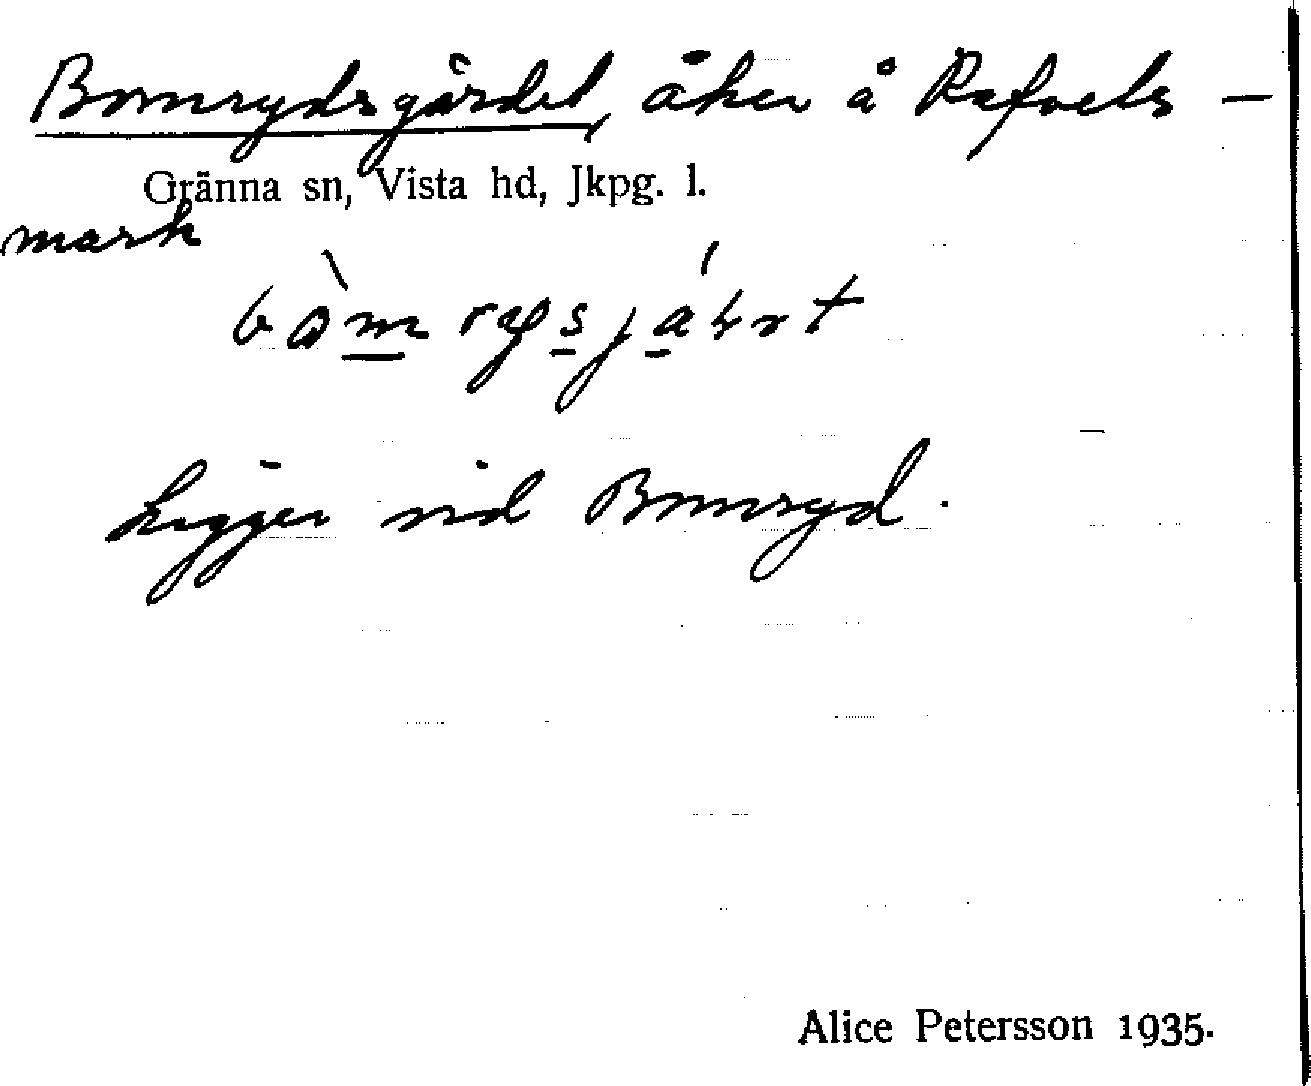 Bomrydsgärdet, åker å Rafvels –
Gränna sn, Vista hd, Jkpg. l.
mark
Ligger vid Bomryd.
Alice Petersson 1935.